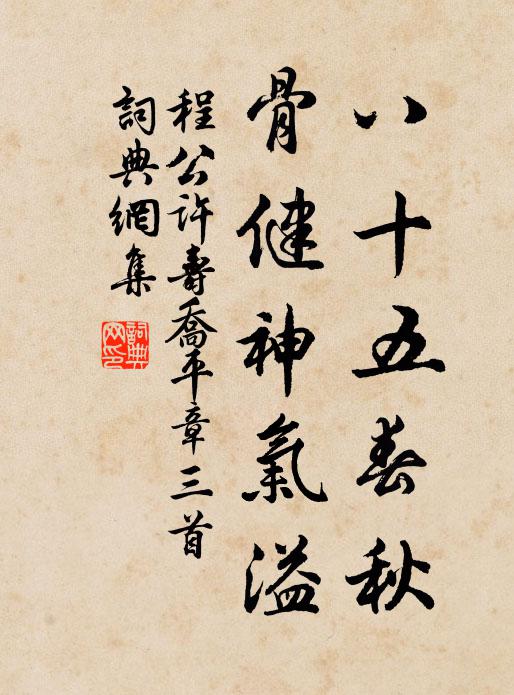 八十五春秋
骨健神氣溢
程公許壽喬平章三首
詞典網集
詞典網印